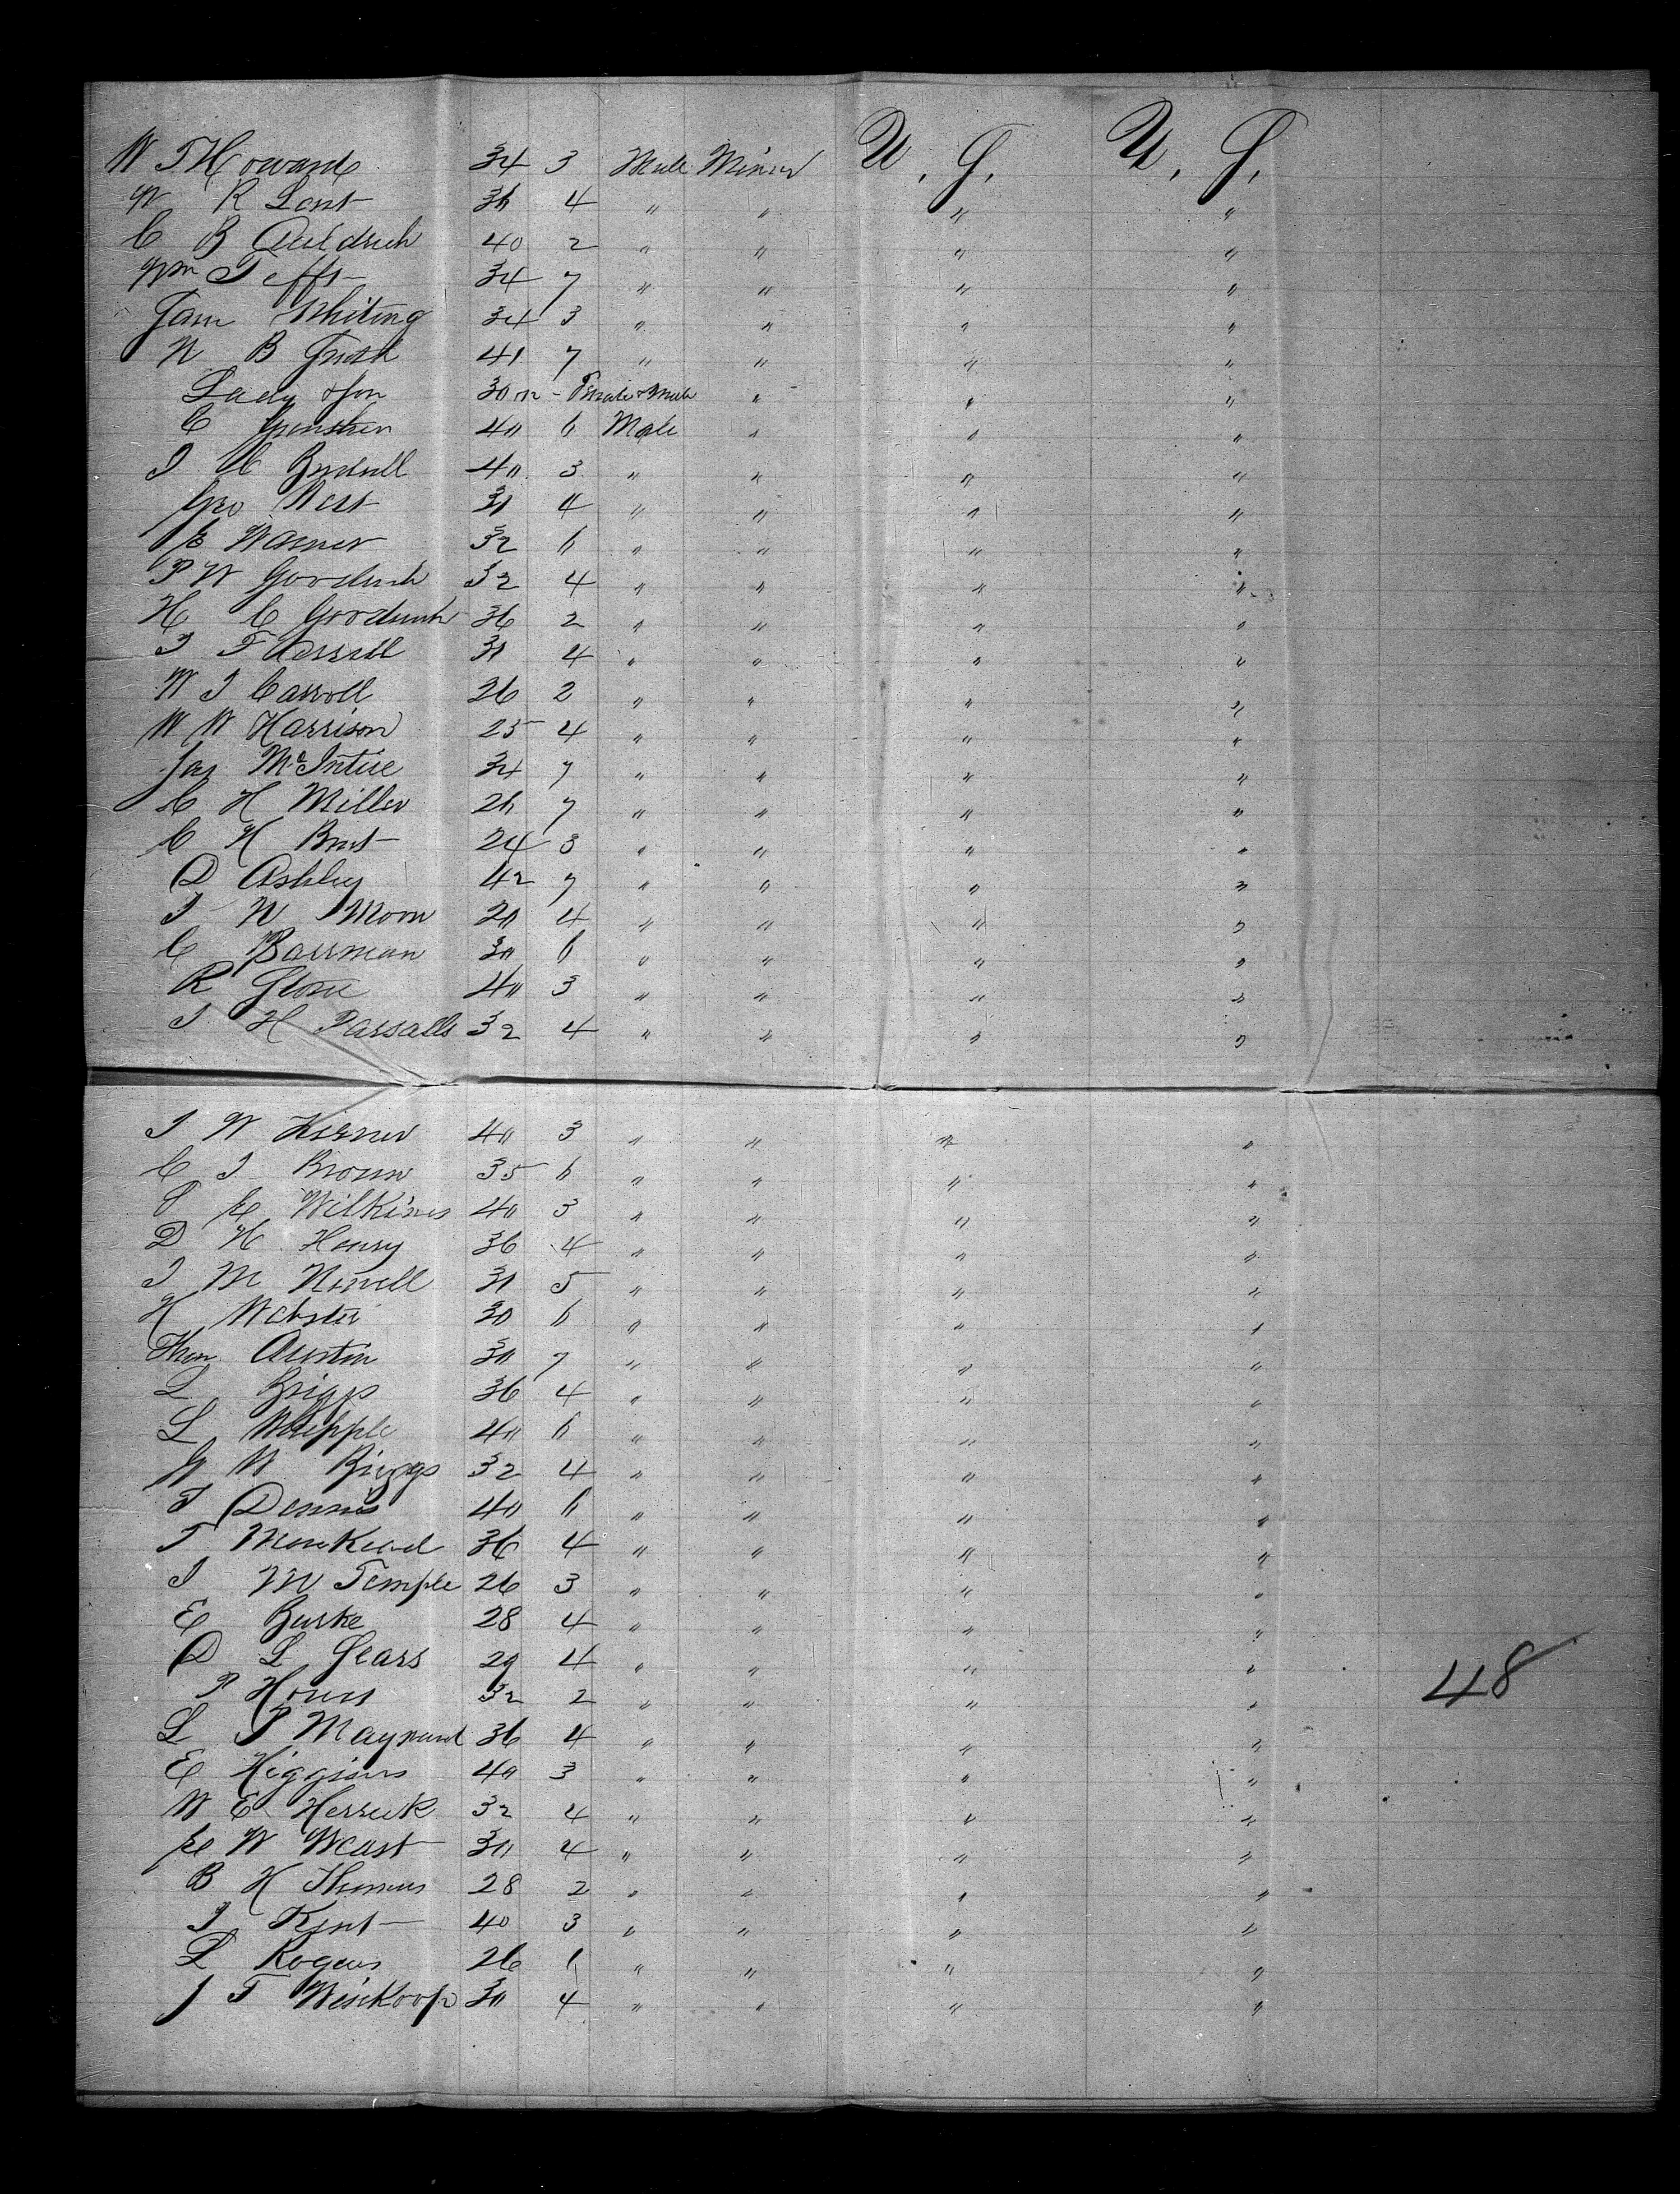 W T Howard 34 3 Male Miner U. S. U. S.
W R Lent 36 4 " " " "
C B Aaldrich 40 2 " " " "
Wm Tefft 34 7 " " " "
Sam Whiting 34 3 " " " "
N B Smith 41 7 " " " "
Lady & Son 30 12 - Female & Male " " "
C 40 6 Male " " "
J C 40 3 " " " "
Geo West 31 4 " " " "
E Warner 32 6 " " " "
P W Goodrich 32 4 " " " "
H C Goodrich 36 2 " " " "
J F 31 4 " " " "
W J Carroll 26 2 " " " "
W W Harrison 25 4 " " " "
Jas McIntire 34 7 " " " "
C H Miller 26 7 " " " "
C H 24 3 " " " "
D Ashley 42 7 " " " "
J N Moon 20 4 " " " "
C Bauman 30 6 " " " "
R 40 3 " " " "
J H 32 4 " " " "
J W 40 3 " " " "
C J Brown 35 6 " " " "
S E Wilkins 40 3 " " " "
D H Henry 36 4 " " " "
J M Newell 31 5 " " " "
H Webster 30 6 " " " "
Thos Austin 30 7 " " " "
L Briggs 36 4 " " " "
L Whipple 40 6 " " " "
G W Briggs 32 4 " " " "
T Dennis 40 6 " " " "
T 36 4 " " " "
J M Temple 26 3 " " " "
E Burke 28 4 " " " "
D L Sears 29 4 " " " "
P 32 2 " " " " 48
L P Maynard 36 4 " " " "
E Higgins 40 3 " " " "
W E Herrick 32 4 " " " "
E W West 30 4 " " " "
B H Thomas 28 2 " " " "
J Kent 40 3 " " " "
L Rogers 26 6 " " " "
J T Winkoop 30 4 " " " "